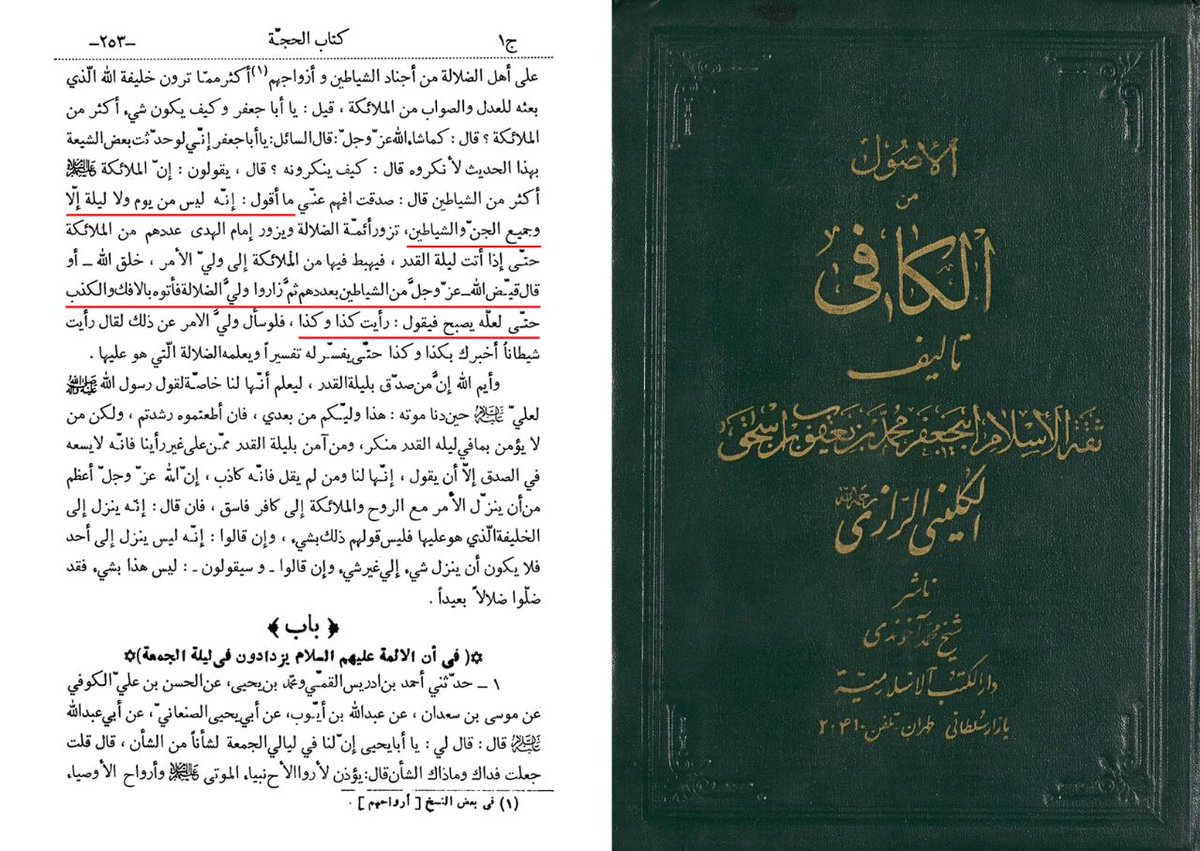 ج١ كتاب الحجـّة -٢٥٣-
على أهل الضلالة من أجناد الشياطين و أزواجهم(١) أكثر ممـّا ترون خليفة الله الّذي
بعثه للعدل والصواب من الملائكة ، قيل : يا أبا جعفر و كيف يكون شيء أكثر من
الملائكة ؟ قال : كما شاء الله عزّ وجلّ : قال السائل : يا أبا جعفر إنّي لو حدّثت بعض الشيعة
بهذا الحديث لأنكروه قال : كيف ينكرونه ؟ قال ، يقولون : إنّ الملائكة عليهم السلام
أكثر من الشياطين قال : صدقت افهم عنّي ما أقول : إنّـه ليس من يوم ولا ليلة إلّا
وجميع الجنّ والشياطين، تزور أئمـّة الضلالة ويزور إمام الهدى عددهم من الملائكة
حتـّى إذا أتت ليلة القدر ، فيهبط فيها من الملائكة إلى وليّ الأمر ، خلق الله ـ أو
قال قيـّض الله ـ عزّ وجلَّ من الشياطين بعددهم ثمَّ زاروا وليَّ الضلالة فأتوه بالافك والكذب
حتـّى لعلّه يصبح فيقول : رأيت كذا وكذا ، فلو سأل وليَّ الامر عن ذلك لقال رأيت
شيطاناً أخبرك بكذا وكذا حتّى يفسّر له تفسيراً ويعلمه الضلالة الّتي هو عليها .
وأيم الله إنَّ من صدّق بليلة القدر ، ليعلم أنّـها لنا خاصّة لقول رسول الله ﷺ
لعليّ عليه السلام حين دنا موته : هذا وليـّكم من بعدي ، فان أطعتموه رشدتم ، ولكن من
لا يؤمن بما في ليله القدر منكر ، ومن آمن بليلة القدر ممـّن على غير رأينا فانّـه لا يسعه
في الصدق إلّا أن يقول ، إنّـها لنا ومن لم يقل فانّـه كاذب ، إنّ الله عزّ وجلّ أعظم
من أن ينزّل الأمر مع الروح والملائكة إلى كافر فاسق ، فان قال : إنّـه ينزل إلى
الخليفة الّذي هو عليها فليس قولهم ذلك بشيء ، وإن قالوا : إنّـه ليس ينزل إلى أحد
فلا يكون أن ينزل شيء إلي غير شيء وإن قالوا ـ و سيقولون ـ : ليس هذا بشيء فقد
ضلّوا ضلالاً بعيداً .
﴿ باب ﴾
✡( فى أن الائمة عليهم السلام يزدادون فى ليلة الجمعة )✡
١ ـ حدّثني أحمد بن ادريس القمـّي ومحمّد بن يحيى ، عن الحسن بن عليّ الكوفي
عن موسى بن سعدان ، عن عبدالله بن أيـّوب ، عن أبي يحيى الصنعانيّ ، عن أبي عبدالله
عليه السلام قال : قال لي : يا أبا يحيى إنّ لنا في ليالي الجمعة لشأناً من الشأن ، قال قلت
جعلت فداك وماذاك الشأن قال : يؤذن لأرواح الأنبياء الموتى عليهم السلام وأرواح الأوصياء
(١) فى بعض النسخ [ أرواحهم ] .
الأصول
من
الكافي
تأليف
ثقة الإسلام أبي جعفر محمد بن يعقوب بن إسحق
الكليني الرازي رحمه الله
ناشر
شيخ محمد آخوندى
دار الكتب الإسلامية
بازار سلطانى طهران - تلفن ٢٠٤١٠